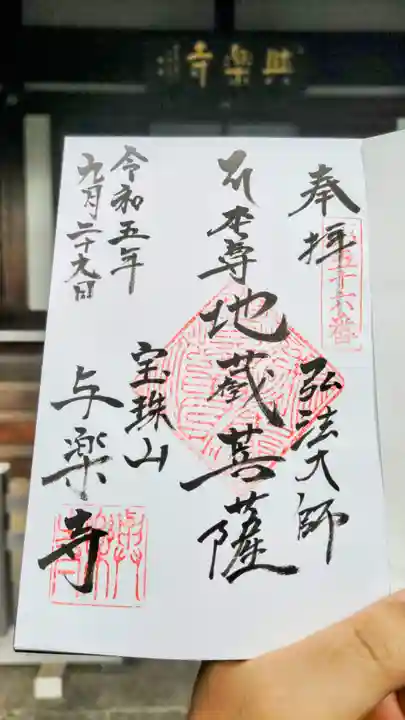 與樂寺
奉拝
第五十六番
弘法大師
本尊地蔵菩薩
宝珠山
与楽寺
令和五年
九月二十九日